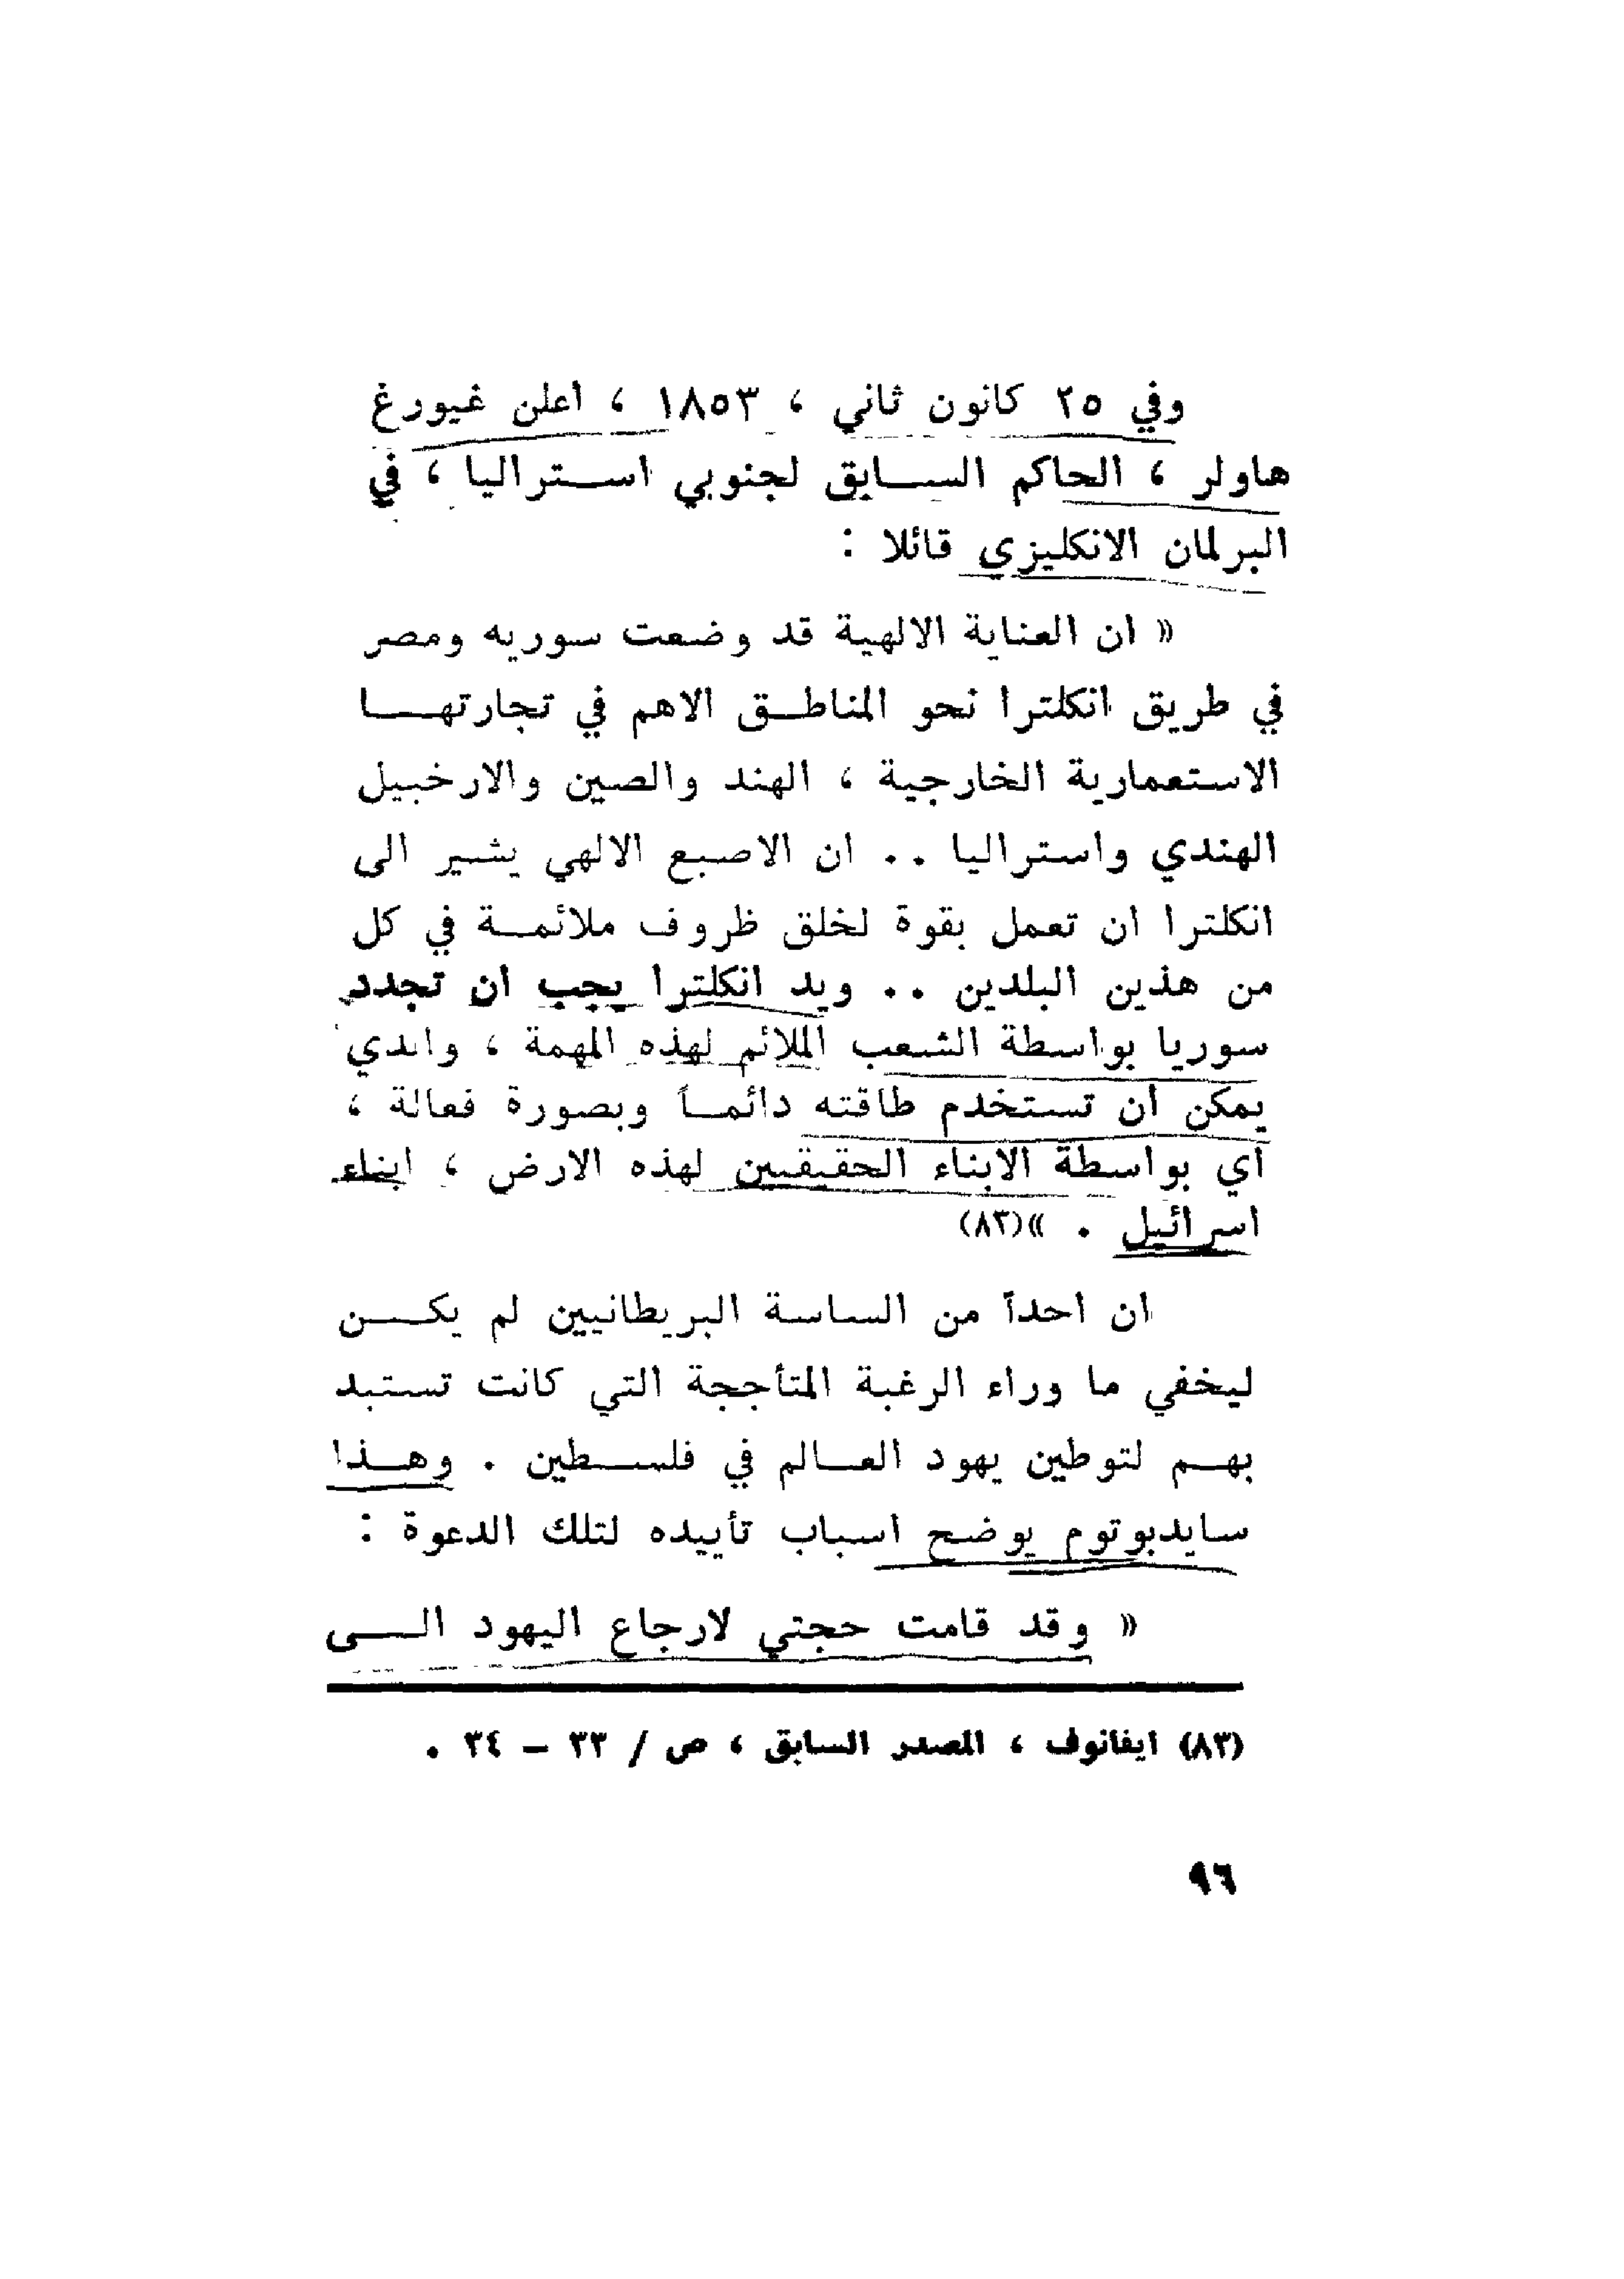 وفي ٢٥ كانون ثاني ، ١٨٥٣ ، اعلن غيورغ
هاولر ، الحاكم الســابق لجنوبي استراليا ، في
البرلمان الانكليزي قائلا :
« ان العناية الالهية قد وضعت سوريه ومصر
في طريق انكلترا نحو المناطق الاهم في تجارتها
الاستعمارية الخارجية ، الهند والصين والارخبيل
الهندي واستراليا .. ان الاصبع الالهي يشير الى
انكلترا ان تعمل بقوة لخلق ظروف ملائمة في كل
من هذين البلدين .. ويد انكلترا يجب ان تجدد
سوريا بواسطة الشعب الملائم لهذه المهمة ، والذي
يمكن ان تستخدم طاقته دائماً وبصورة فعالة ،
اي بواسطة الابناء الحقيقيين لهذه الارض ، ابناء
اسرائيل . »(٨٣)
ان احداً من الساسة البريطانيين لم يكن
ليخفي ما وراء الرغبة المتأججة التي كانت تستبد
بهم لتوطين يهود العالم في فلسطين . وهذا
سايدبوتوم يوضح اسباب تأييده لتلك الدعوة :
« وقد قامت حجتي لارجاع اليهود الى
(٨٣) ايفانوف ، المصدر السابق ، ص / ٣٣ - ٣٤ .
٩٦